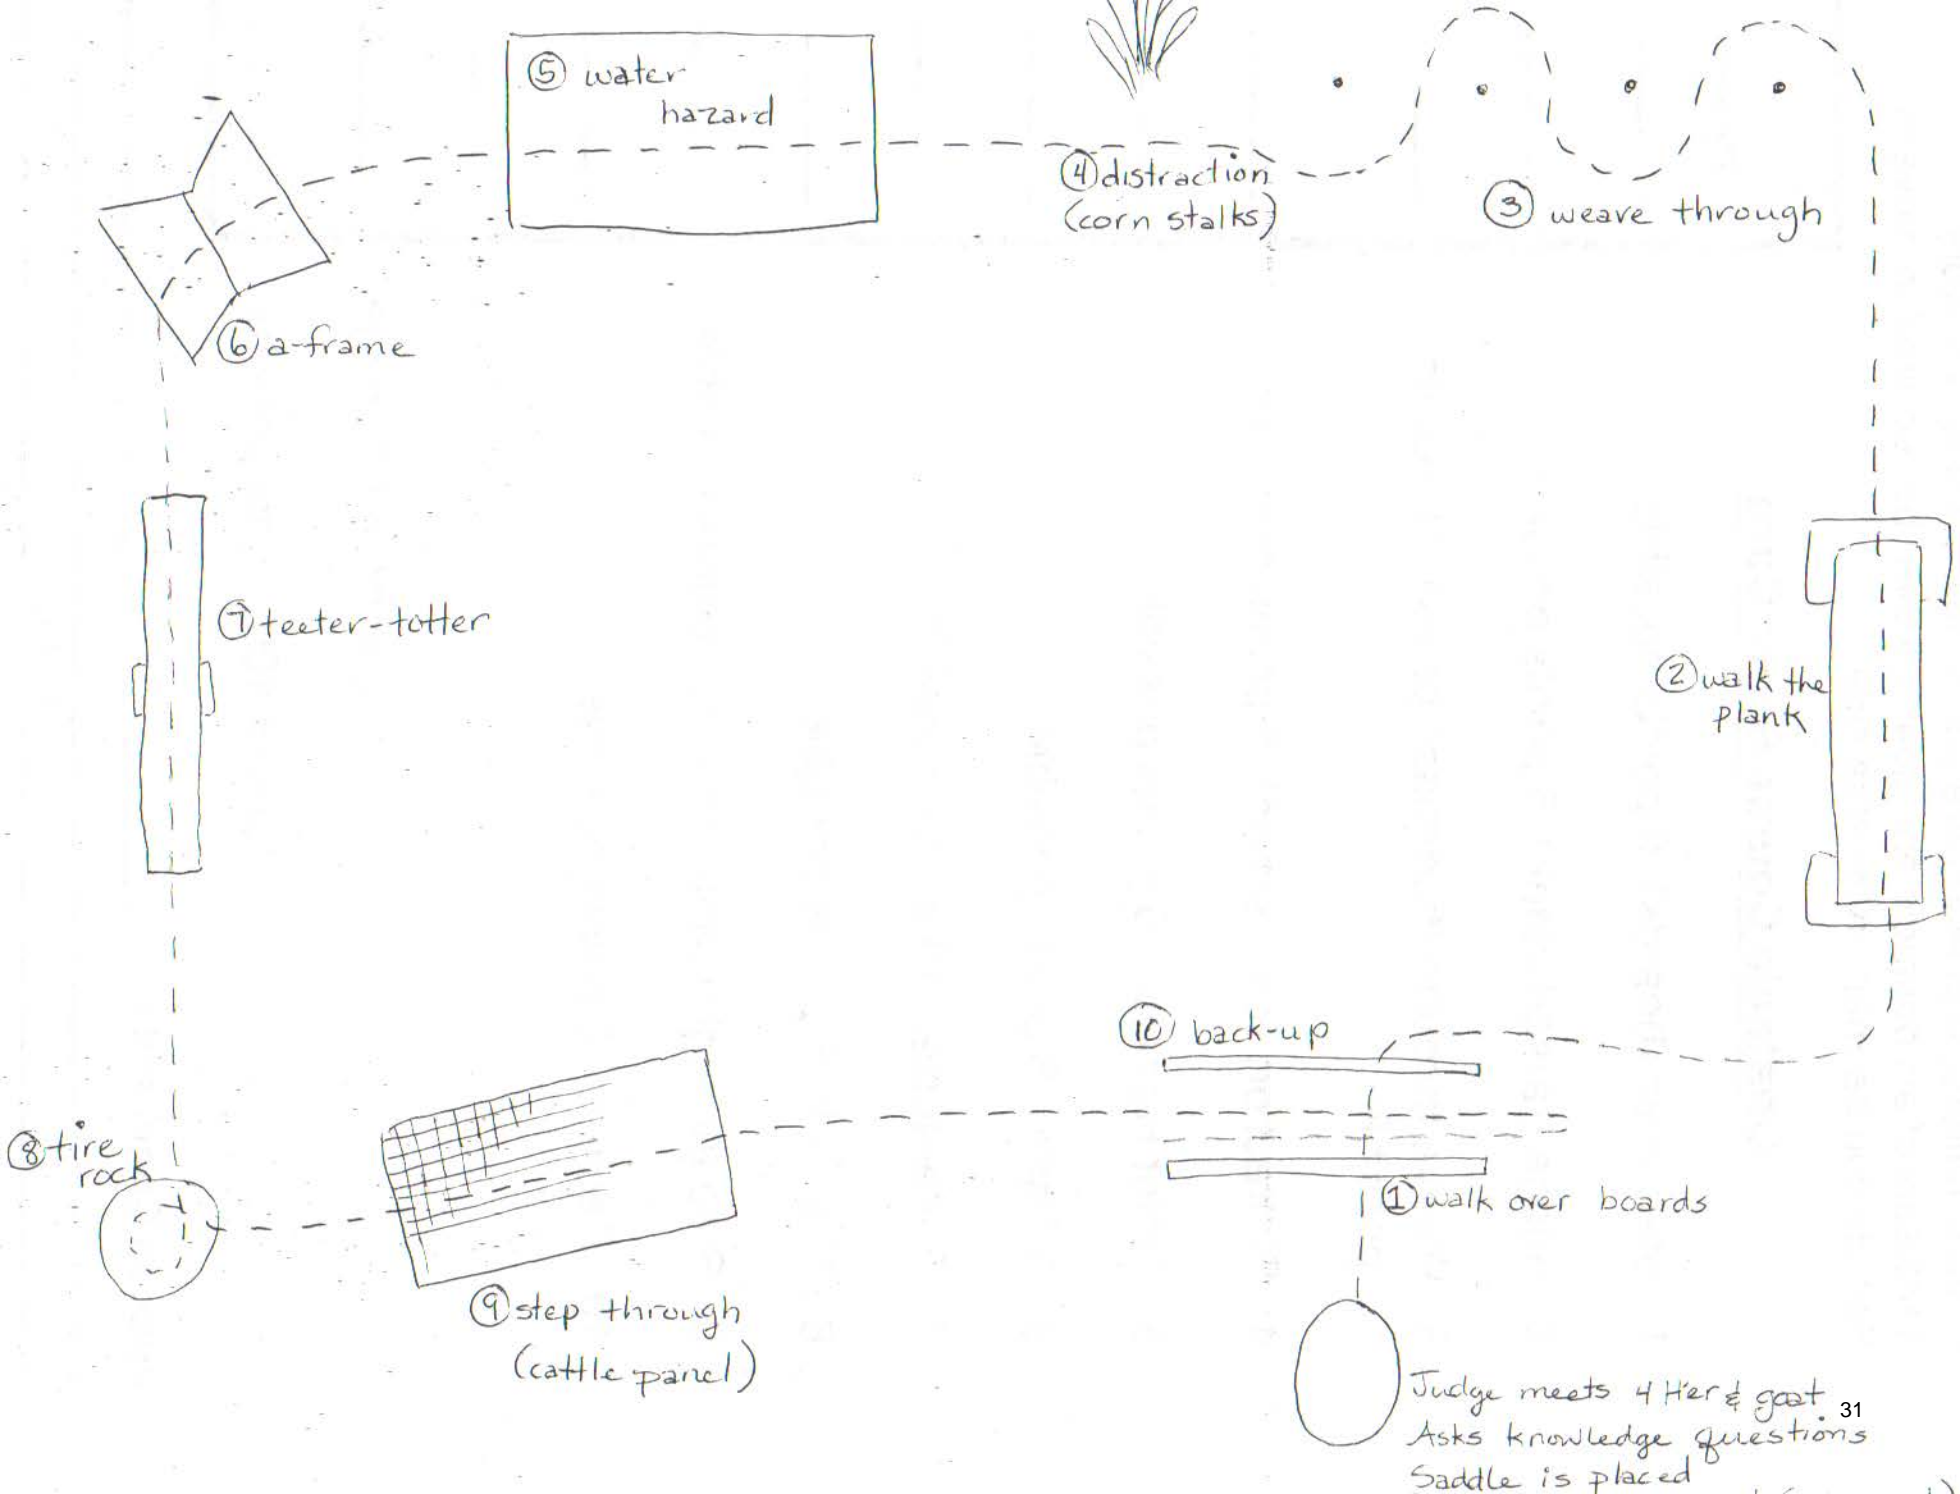 ⑤ water
hazard
④ distraction
(corn stalks)
③ weave through
⑥ a-frame
⑦ teeter-totter
② walk the
plank
⑩ back-up
⑧ tire
rock
① walk over boards
⑨ step through
(cattle panel)
Judge meets 4 H'er & goat
31
Asks knowledge questions
Saddle is placed